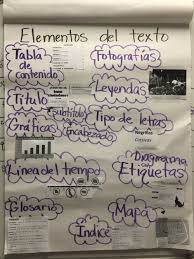 Elementos del texto
Tabla de contenido
Fotografías
Leyendas
Título
Subtítulo
Encabezado
Tipo de letras
Negrita
Gráficas
Línea del tiempo
Diagrama con Etiquetas
Glosario
Mapa
Índice